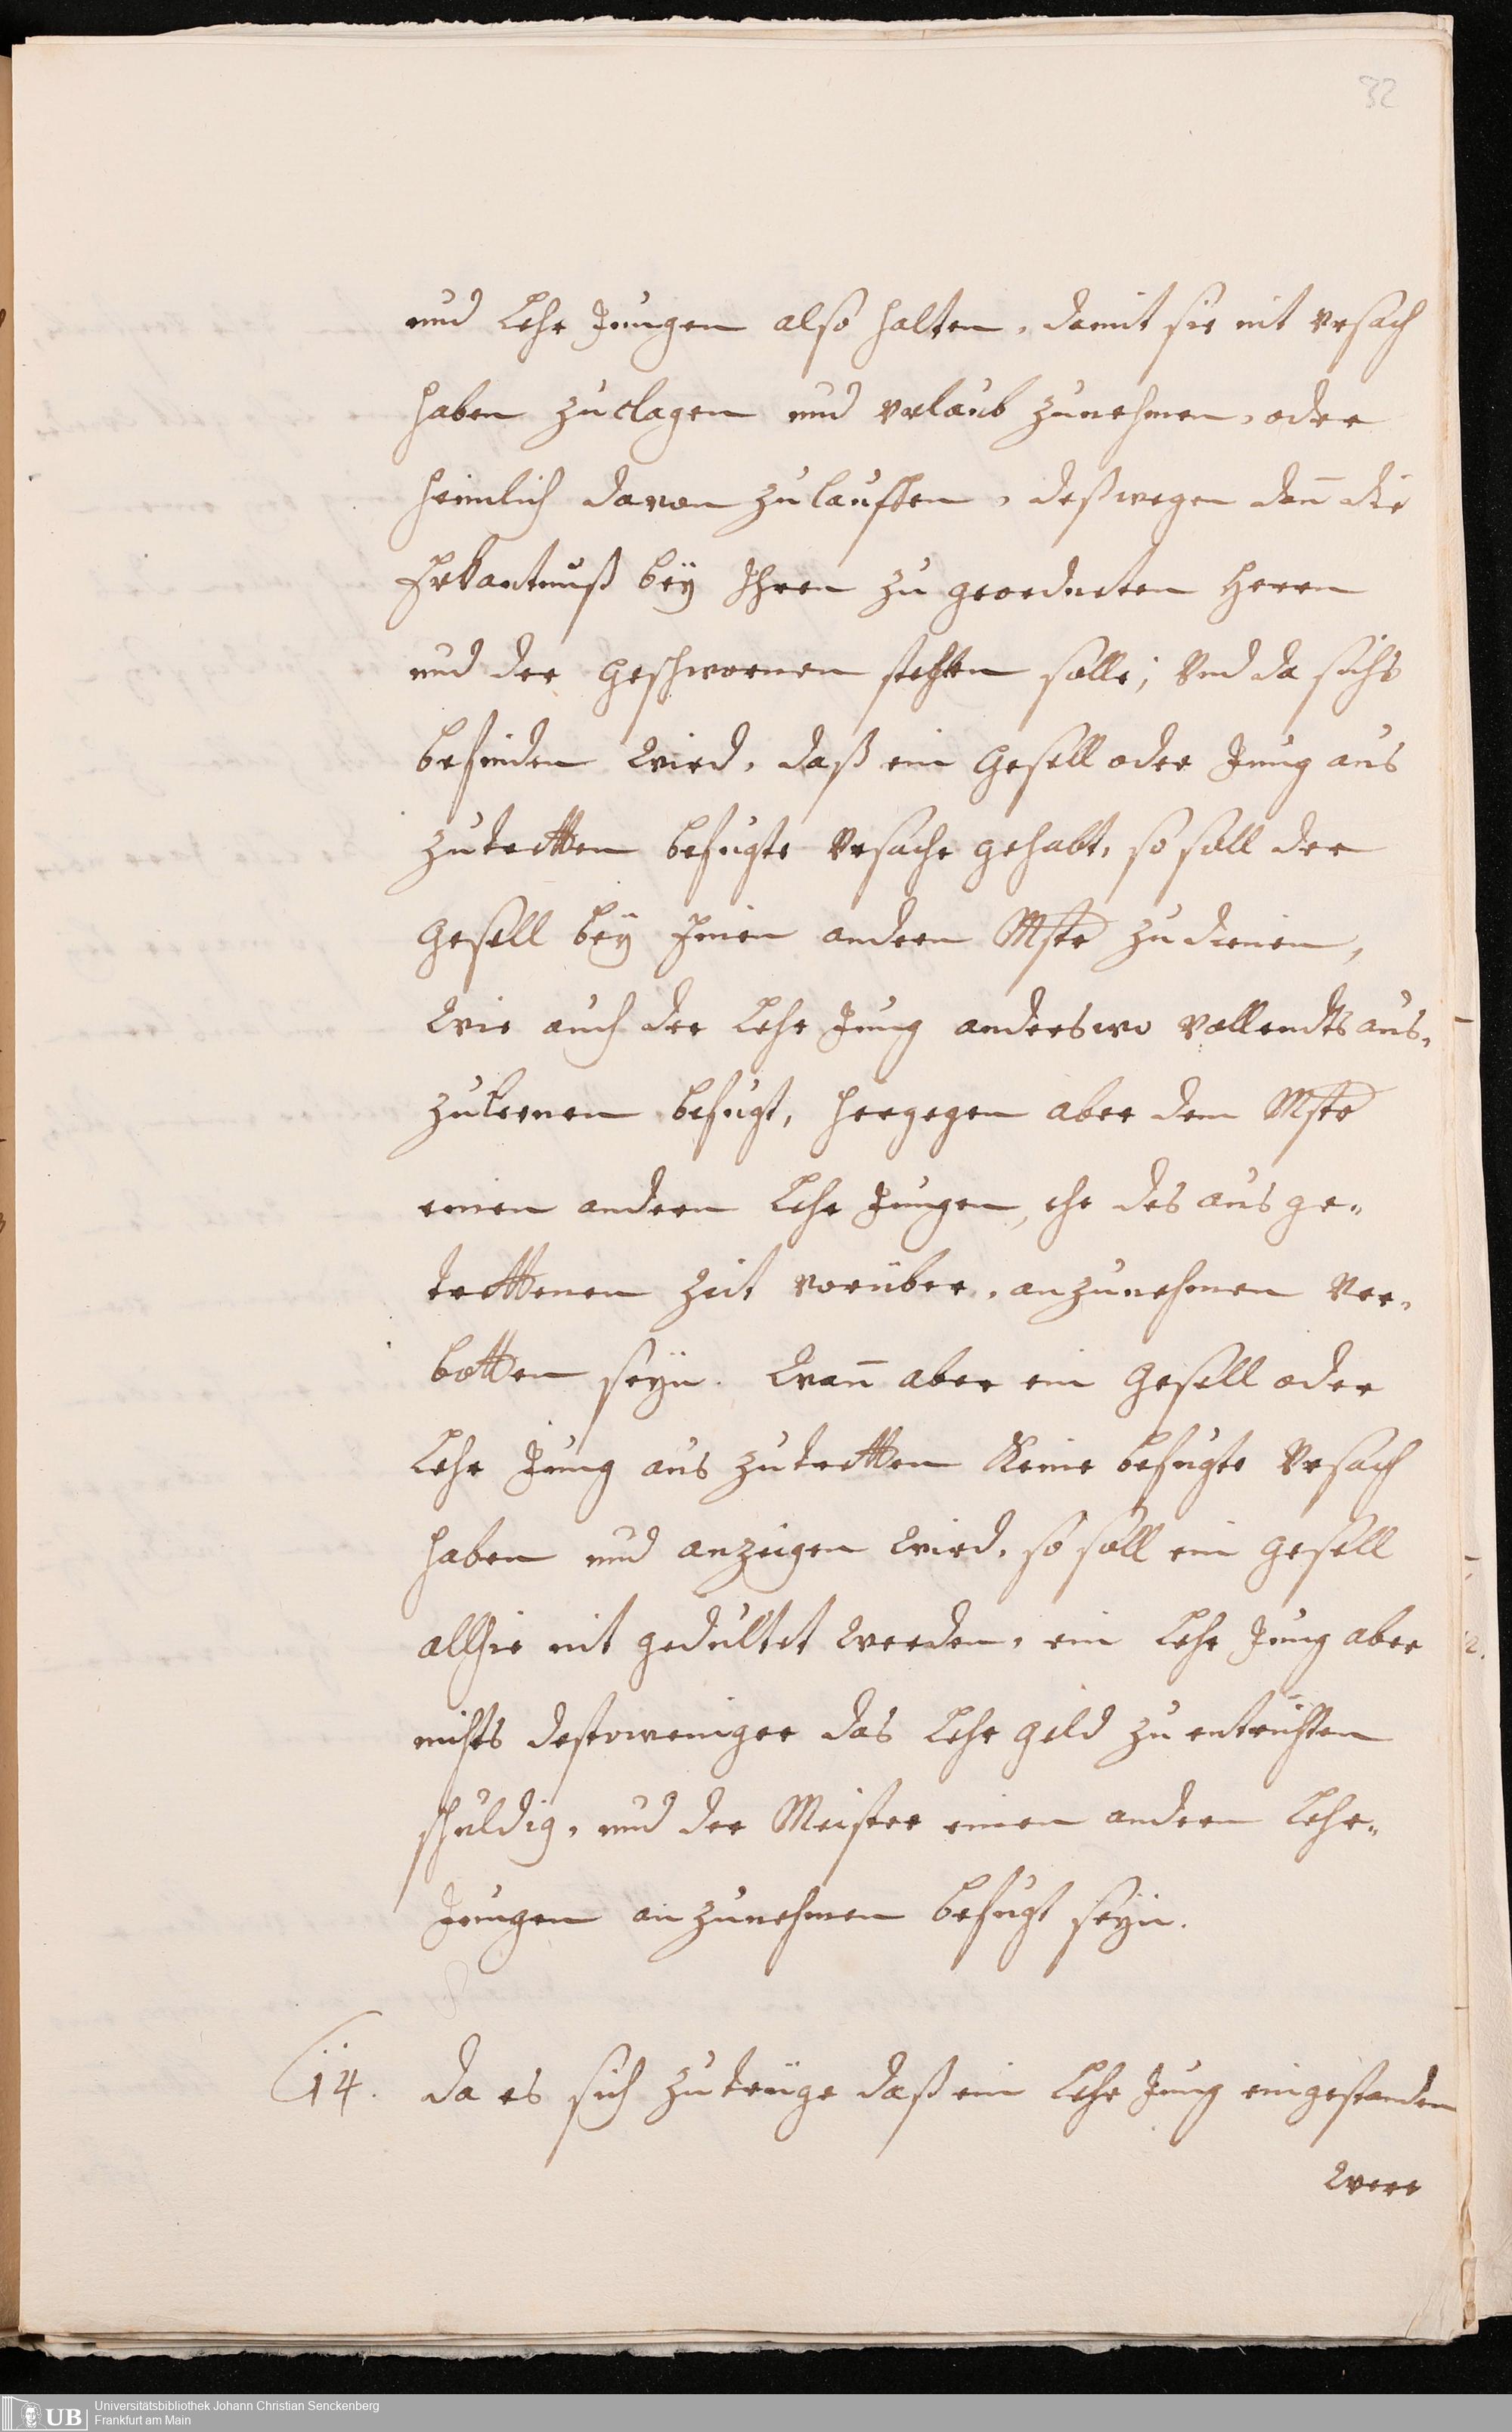 32
und Lehr Jungen also halten, damit sie nit vrsach
haben zuclagen und vrlaub zunehmen, oder
heimlich davon zulauffen, deßwegen dañ die
Erkantnuß beÿ Ihren zu geordneten Herrn
und der Geschwornen stehen solle; Vnd da sichs
befinden wird, daß ein Gesell oder Jung aus
zutretten befugte Vrsache gehabt, so soll der
Gesell beÿ Einen andern Mstr zu dienen,
wie auch der Lehr Jung anderswo vollendts aus,
zulernen befugt, hergegen aber dem Mstr
einen andern Lehr Jungen, ehe des aus ge,,
trettenen Zeit vorüber, anzunehmen ver,
botten seÿn. Wañ aber ein Gesell oder
Lehr Jung aus zutretten Keine befugte Vrsach
haben und anzeigen wird, so soll ein Gesell
allhie nit gedultet werden, ein Lehr Jung aber
nichts destoweniger das Lehr geld zu entrichten
schuldig, und der Meister einen andern Lehr,,
Jungen anzunehmen befugt seÿn.
14. Da es sich zutrüge daß ein Lehr Jung eingestanden
were
UB
Universitätsbibliothek Johann Christian Senckenberg
Frankfurt am Main